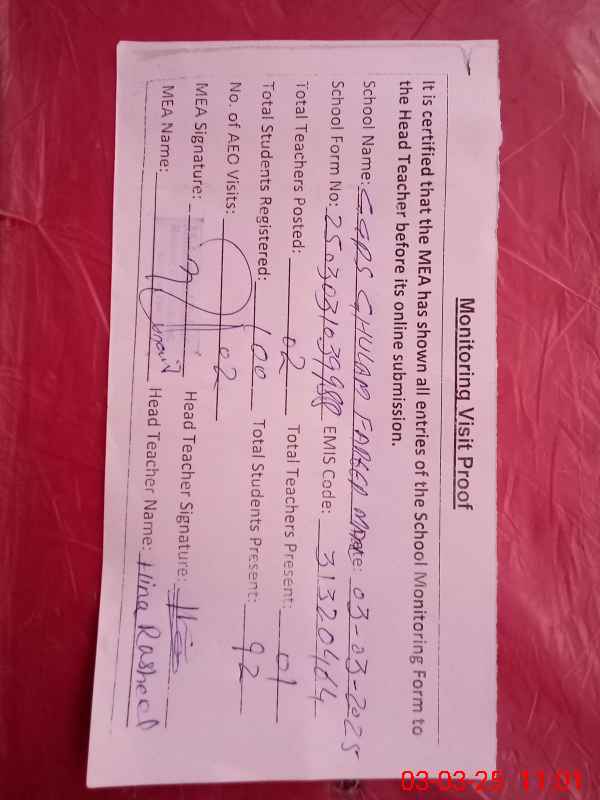 Monitoring Visit Proof
It is certified that the MEA has shown all entries of the School Monitoring Form to
the Head Teacher before its online submission.
School Name: GGPS GHULAM FAREED Date: 03-03-2025
School Form No: EMIS Code: 31320464
Total Teachers Posted: 02 Total Teachers Present: 01
Total Students Registered: 100 Total Students Present: 92
No. of AEO Visits: 02
MEA Signature: Head Teacher Signature:
MEA Name: Head Teacher Name: Hina Rasheed
03-03-25 11:01